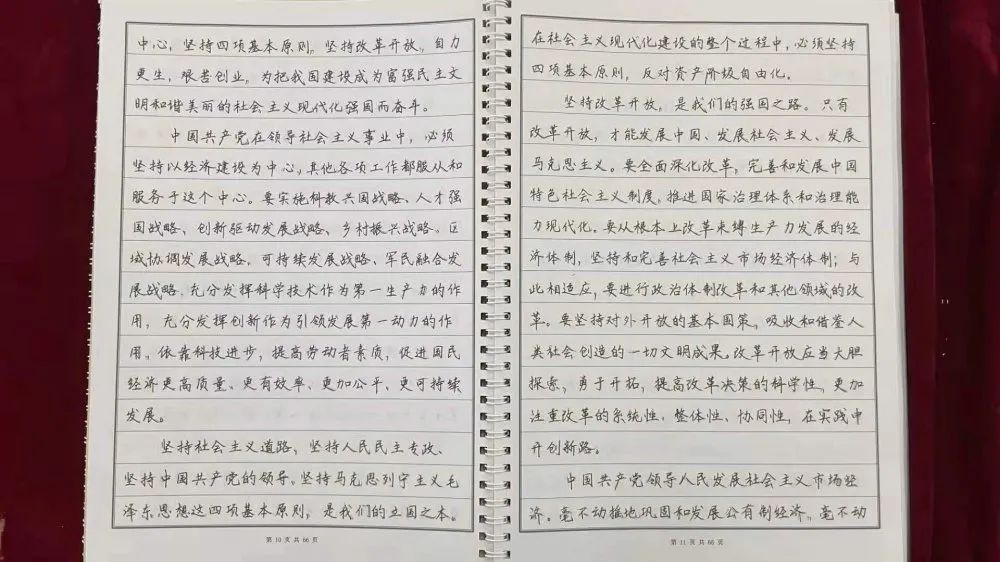 中心，坚持四项基本原则，坚持改革开放，自力
更生，艰苦创业，为把我国建设成为富强民主文
明和谐美丽的社会主义现代化强国而奋斗。
中国共产党在领导社会主义事业中，必须
坚持以经济建设为中心，其他各项工作都服从和
服务于这个中心。要实施科教兴国战略、人才强
国战略、创新驱动发展战略、乡村振兴战略、区
域协调发展战略、可持续发展战略、军民融合发
展战略，充分发挥科学技术作为第一生产力的作
用，充分发挥创新作为引领发展第一动力的作
用，依靠科技进步，提高劳动者素质，促进国民
经济更高质量、更有效率、更加公平、更可持续
发展。
坚持社会主义道路、坚持人民民主专政、
坚持中国共产党的领导、坚持马克思列宁主义毛
泽东思想这四项基本原则，是我们的立国之本。
第 10 页 共 66 页
在社会主义现代化建设的整个过程中，必须坚持
四项基本原则，反对资产阶级自由化。
坚持改革开放，是我们的强国之路。只有
改革开放，才能发展中国、发展社会主义、发展
马克思主义。要全面深化改革，完善和发展中国
特色社会主义制度，推进国家治理体系和治理能
力现代化。要从根本上改革束缚生产力发展的经
济体制，坚持和完善社会主义市场经济体制；与
此相适应，要进行政治体制改革和其他领域的改
革。要坚持对外开放的基本国策，吸收和借鉴人
类社会创造的一切文明成果。改革开放应当大胆
探索，勇于开拓，提高改革决策的科学性，更加
注重改革的系统性、整体性、协同性，在实践中
开创新路。
中国共产党领导人民发展社会主义市场经
济。毫不动摇地巩固和发展公有制经济，毫不动
第 11 页 共 66 页